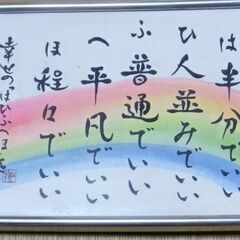 は半分でいい
ひ人並みでいい
ふ普通でいい
へ平凡でいい
ほ程々でいい
幸せの「はひふへほ」